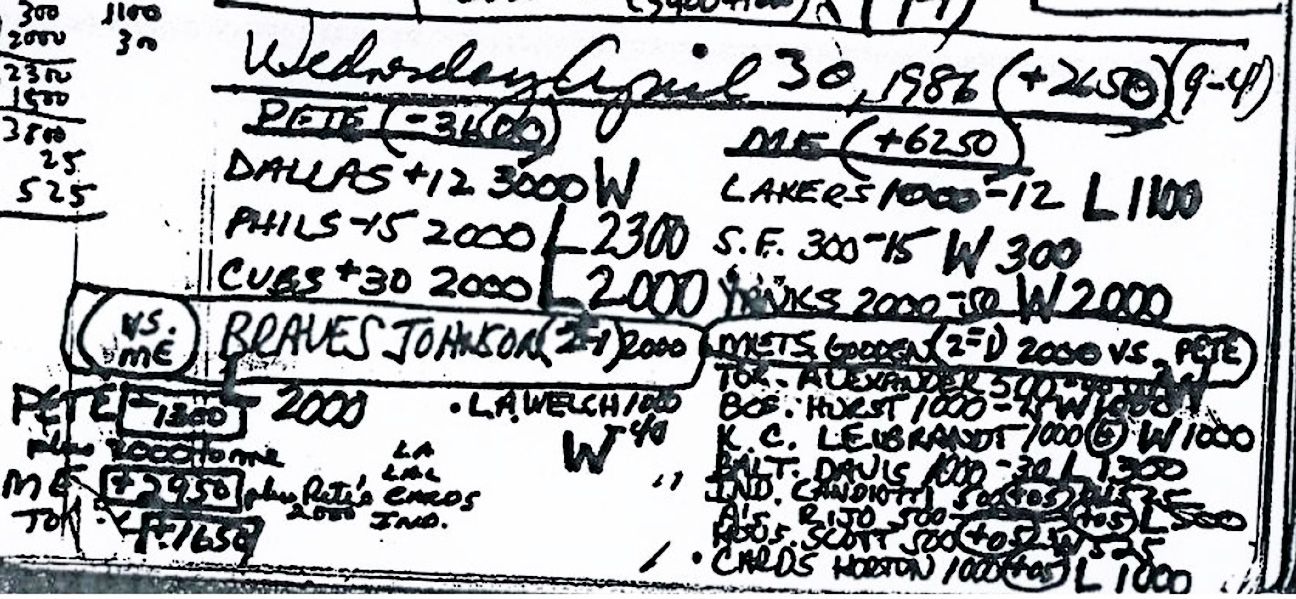 300 1100
2000 300
2300
1500
3800
25
525
Wednesday April 30, 1986 (+2650) (9-4)
PETE (-3600)
DALLAS +12 3000 W
PHILS -15 2000 L 2300
CUBS +30 2000 L 2000
VS. ME
BRAVES JOHNSON (2-1) 2000
L 2000
PETE -1300
plus 2000 to me
ME +2950 plus Pete's 2000
TOT +1650
. L.A. WELCH 1000 -40
W
LA
LAL
CARDS
IND.
ME (+6250)
LAKERS 1000 -12 L 1100
S.F. 300 -15 W 300
YANKS 2000 -50 W 2000
METS GOODEN (2-1) 2000 VS. PETE
W
TOR. ALEXANDER 500
BOS. HURST 1000 W 1000
K.C. LEIBRANDT 1000 (5) W 1000
BALT. DAVIS 1000 -30 L 1300
IND. CANDIOTTI 500 (+05) 525
A's RIJO 500 (+05) L 500
HOUS. SCOTT 500 (+05) W 525
. CARDS HORTON 1000 (+05) L 1000